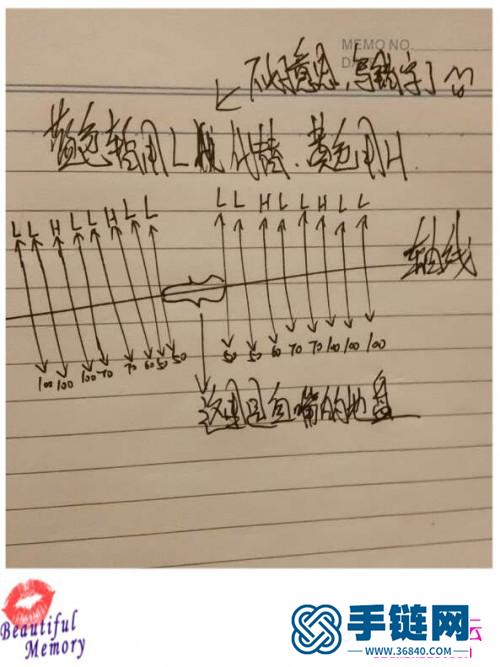 MEMO NO.
不好意思,写错字了
蓝色轴用L线代替.黄色用H
L L H L L H L L
L L H L L H L L
轴线
100 100 100 70 70 60 50 50
50 50 60 70 70 100 100 100
这里是鱼嘴的地盘
Beautiful
Memory
手链网
www.36840.com